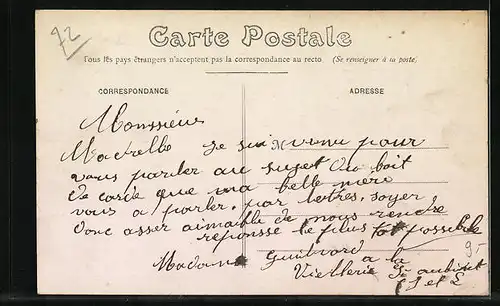 72
Carte Postale
Tous lès pays étrangers n'acceptent pas la correspondance au recto. (Se renseigner à la poste)
CORRESPONDANCE
ADRESSE
Monssieur
Je sui venu pour
vous parler au sujet du boit
de corde que ma belle mere
vous a parler, par lettres, soyer
donc asser aimable de nous rendre
reponsse le plus tot possible
Madame Guilvard a la
Viellerie St aubin
95